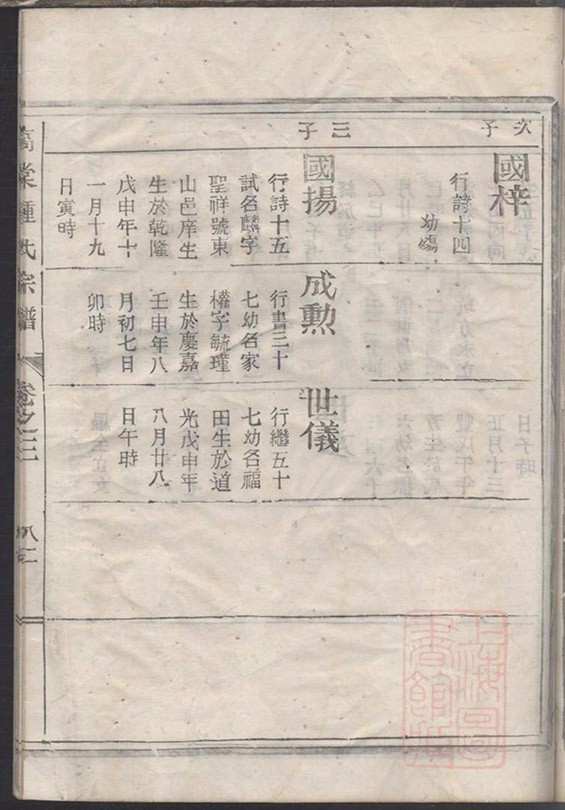 次子
國梓
行詩十四
幼殤
三子
國揚
行詩十五
試名麟字
聖祥號東
山邑庠生
生於乾隆
戊申年十
一月十九
日寅時
成勲
行書三十
七幼名家
權字毓瑾
生於慶嘉
壬申年八
月初七日
卯時
世儀
行繼五十
七幼名福
田生於道
光戊申年
八月廿八
日午時
棠鍾氏宗譜
卷之三
上海圖
書館藏